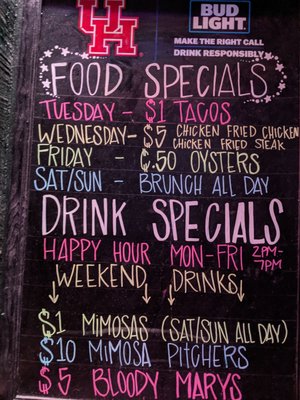 UH
BUD
LIGHT
MAKE THE RIGHT CALL
DRINK RESPONSIBLY
FOOD SPECIALS
TUESDAY - $1 TACOS
WEDNESDAY - $5 CHICKEN FRIED CHICKEN
CHICKEN FRIED STEAK
FRIDAY - ¢.50 OYSTERS
SAT/SUN - BRUNCH ALL DAY
DRINK SPECIALS
HAPPY HOUR MON-FRI 2PM-
7PM
WEEKEND DRINKS
$1 MIMOSAS (SAT/SUN ALL DAY)
$10 MIMOSA PITCHERS
$5 BLOODY MARYS